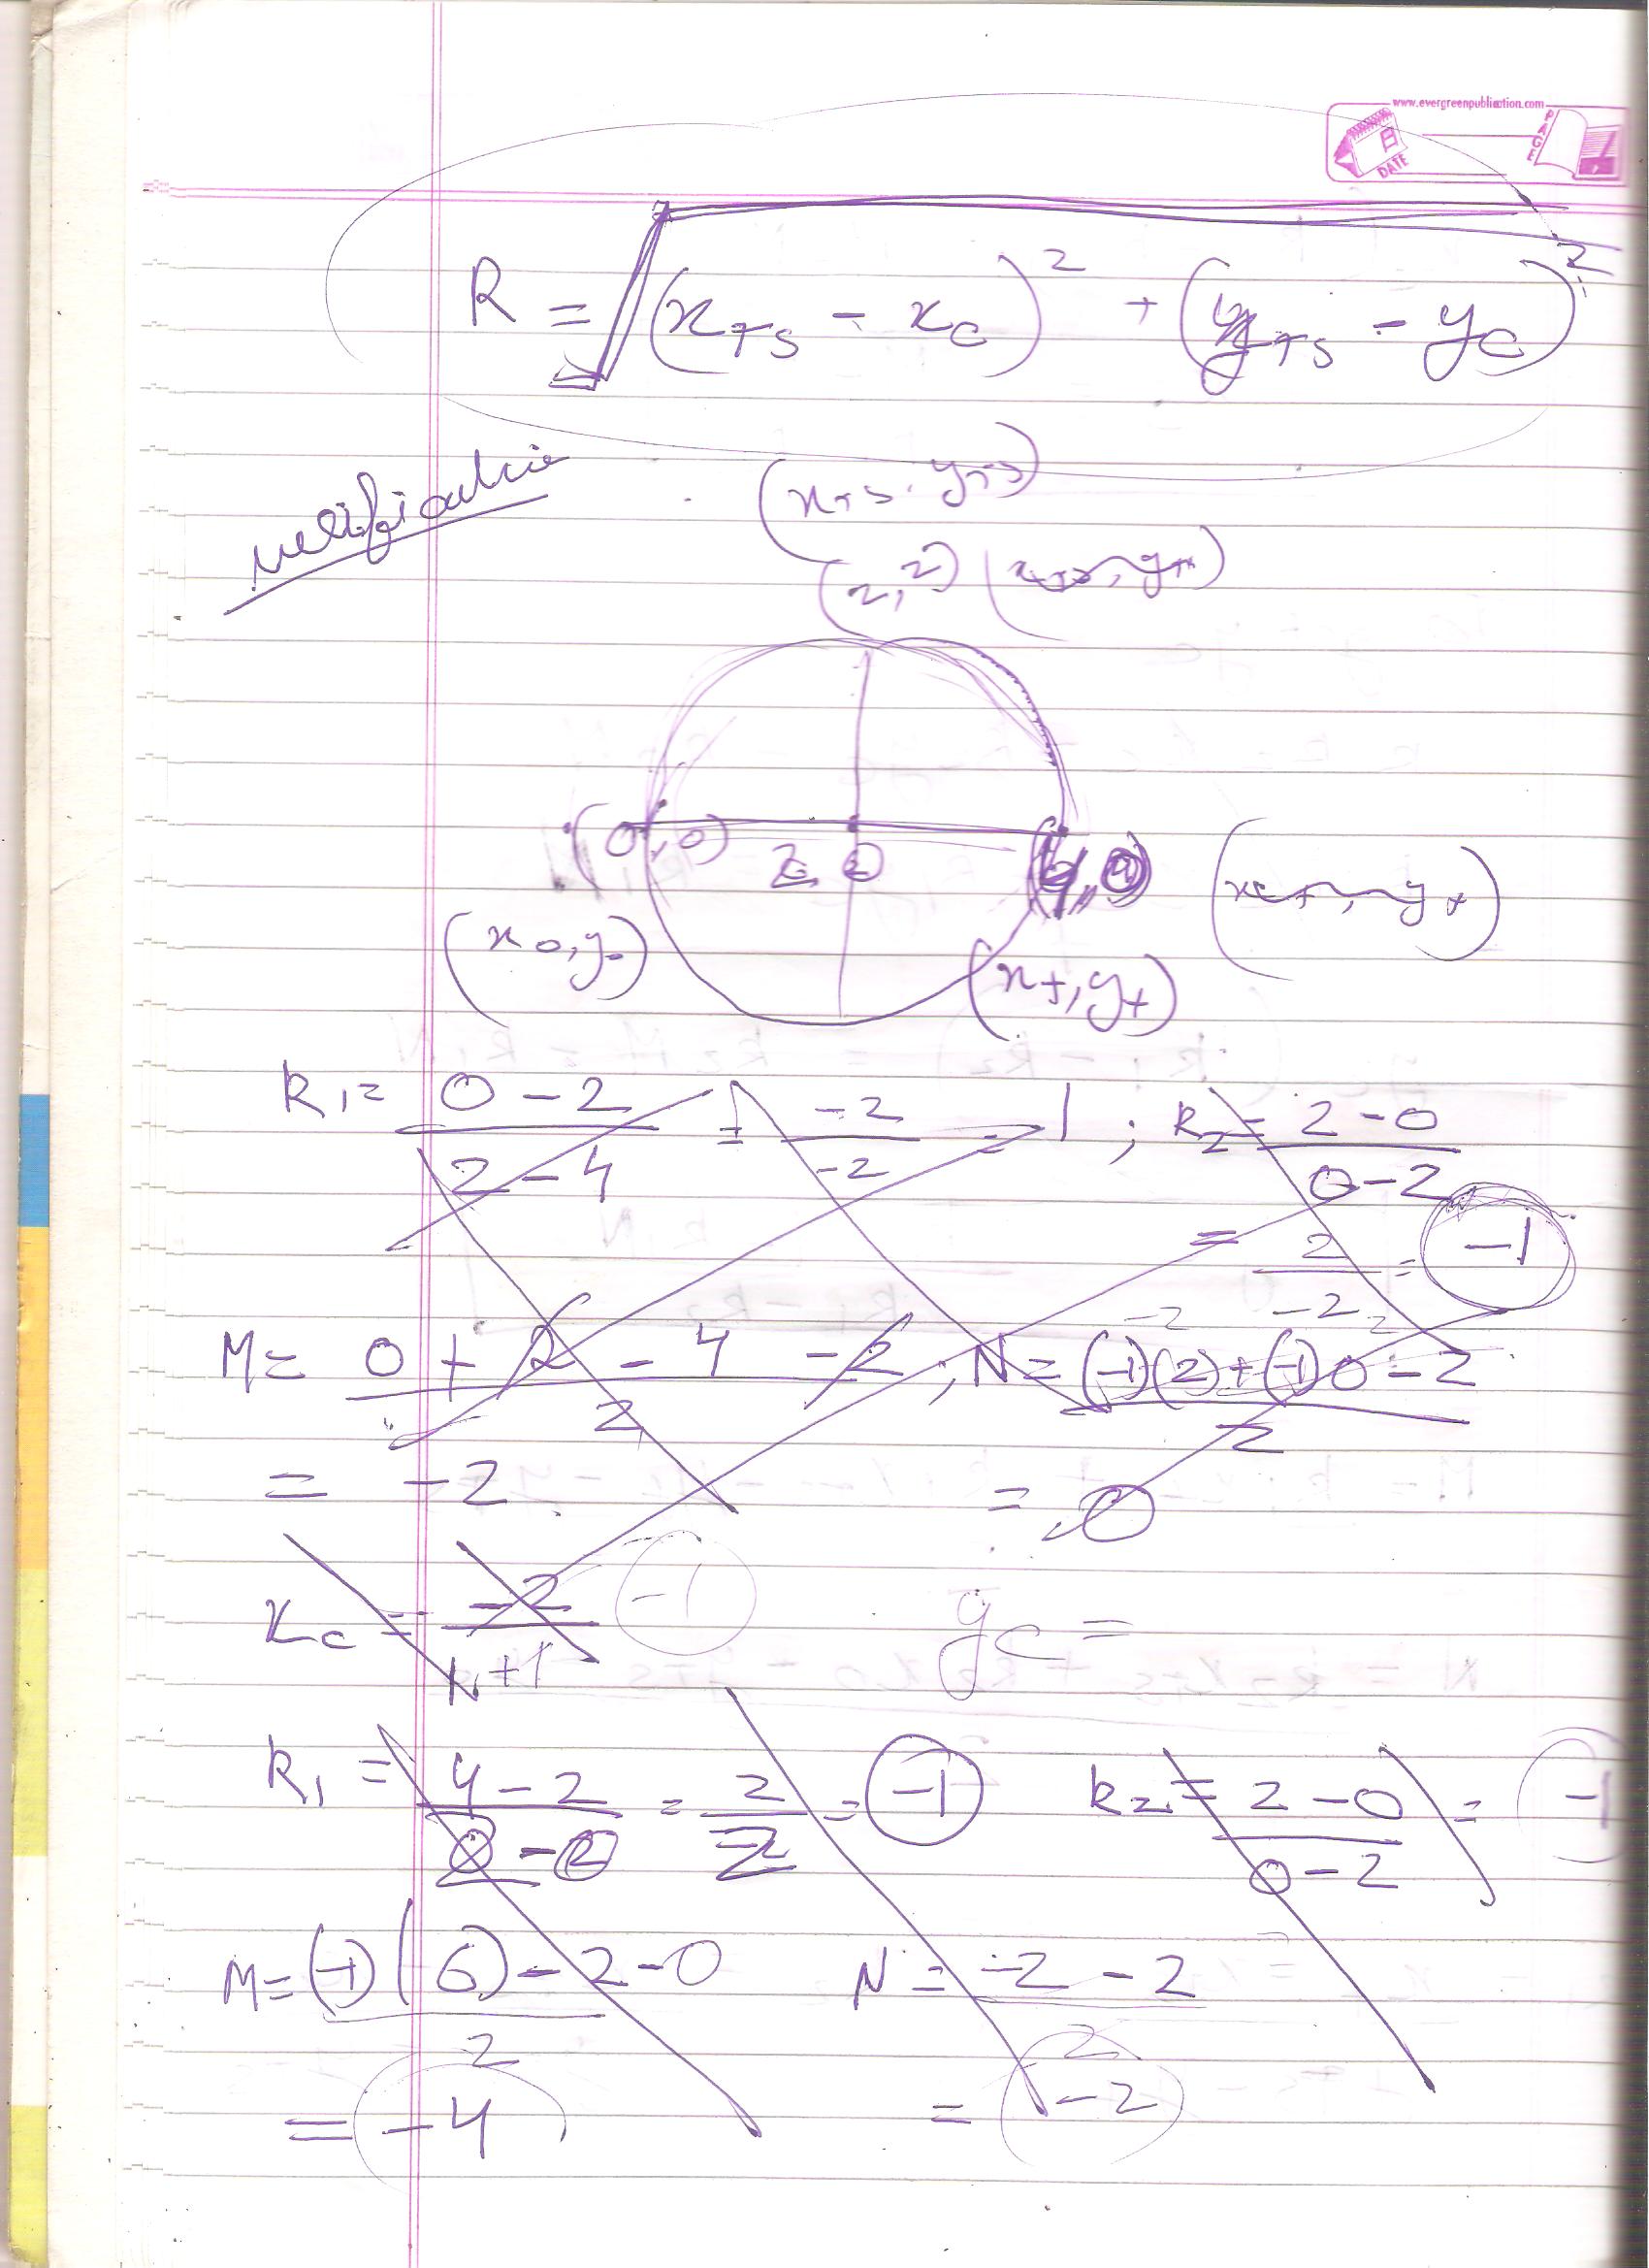 www.evergreenpublication.com
DATE
PAGE
R = √(x_TS - x_c)² + (y_TS - y_c)²
(x_TS, y_TS)
(2, 2)
(0, 0) 2, 0
(x_0, y_0) (x_t, y_t)
k_1 = 0-2 / 2-4 = -2 / -2 = 1 ; k_2 = 2-0 / 0-2
= 2 / -2 = -1
M = 0 + 2 - 4 - 2 / 2 ; N = (-1)(2) + (-1)0 - 2 / 2
= -2 = 0
x_c = -2 / N+1 -1 y_c =
k_1 = 4-2 / 0-2 = 2 / -2 = -1 k_2 = 2-0 / 0-2 = -1
M = (-1)(6) - 2 - 0 / 2 N = -2 - 2 / 2
= -4 = -2